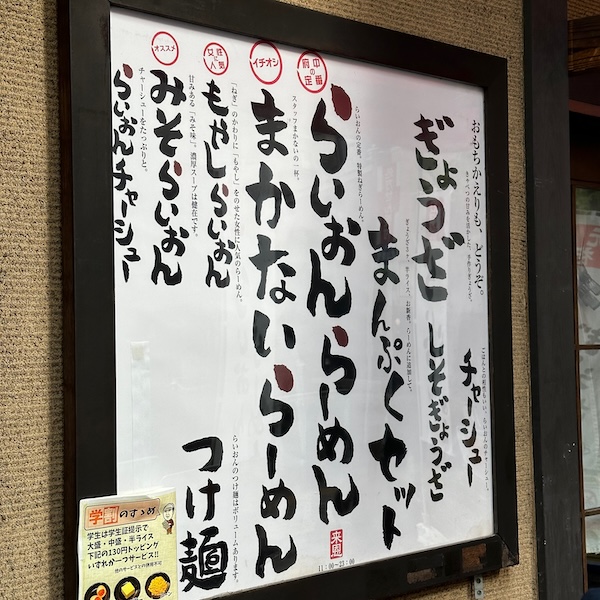 おもちかえりも、どうぞ。
ぎょうざ
しそぎょうざ
キャベツの甘みを活かした、手作りぎょうざ。
チャーシュー
ごはんとの相性もいい、らいおんのチャーシュー。
まんぷくセット
ぎょうざ3ヶ、半ライス、お新香。らーめんに追加して。
府中の定番
らいおんらーめん
らいおんの定番、特製ねぎらーめん。
イチオシ
まかないらーめん
スタッフまかないの一杯。
つけ麺
らいおんのつけ麺はボリュームあります。
女性に人気
もやしらいおん
「ねぎ」のかわりに「もやし」をのせた女性に人気のらーめん。
オススメ
みそらいおん
甘みある「みそ味」。濃厚スープは健在です。
らいおんチャーシュー
チャーシューをたっぷりと。
11:00~23:00
学割のすゝめ
学生は学生証提示で
大盛・中盛・半ライス
下記の130円トッピング
いずれか一つサービス!!
他のサービスとの併用不可